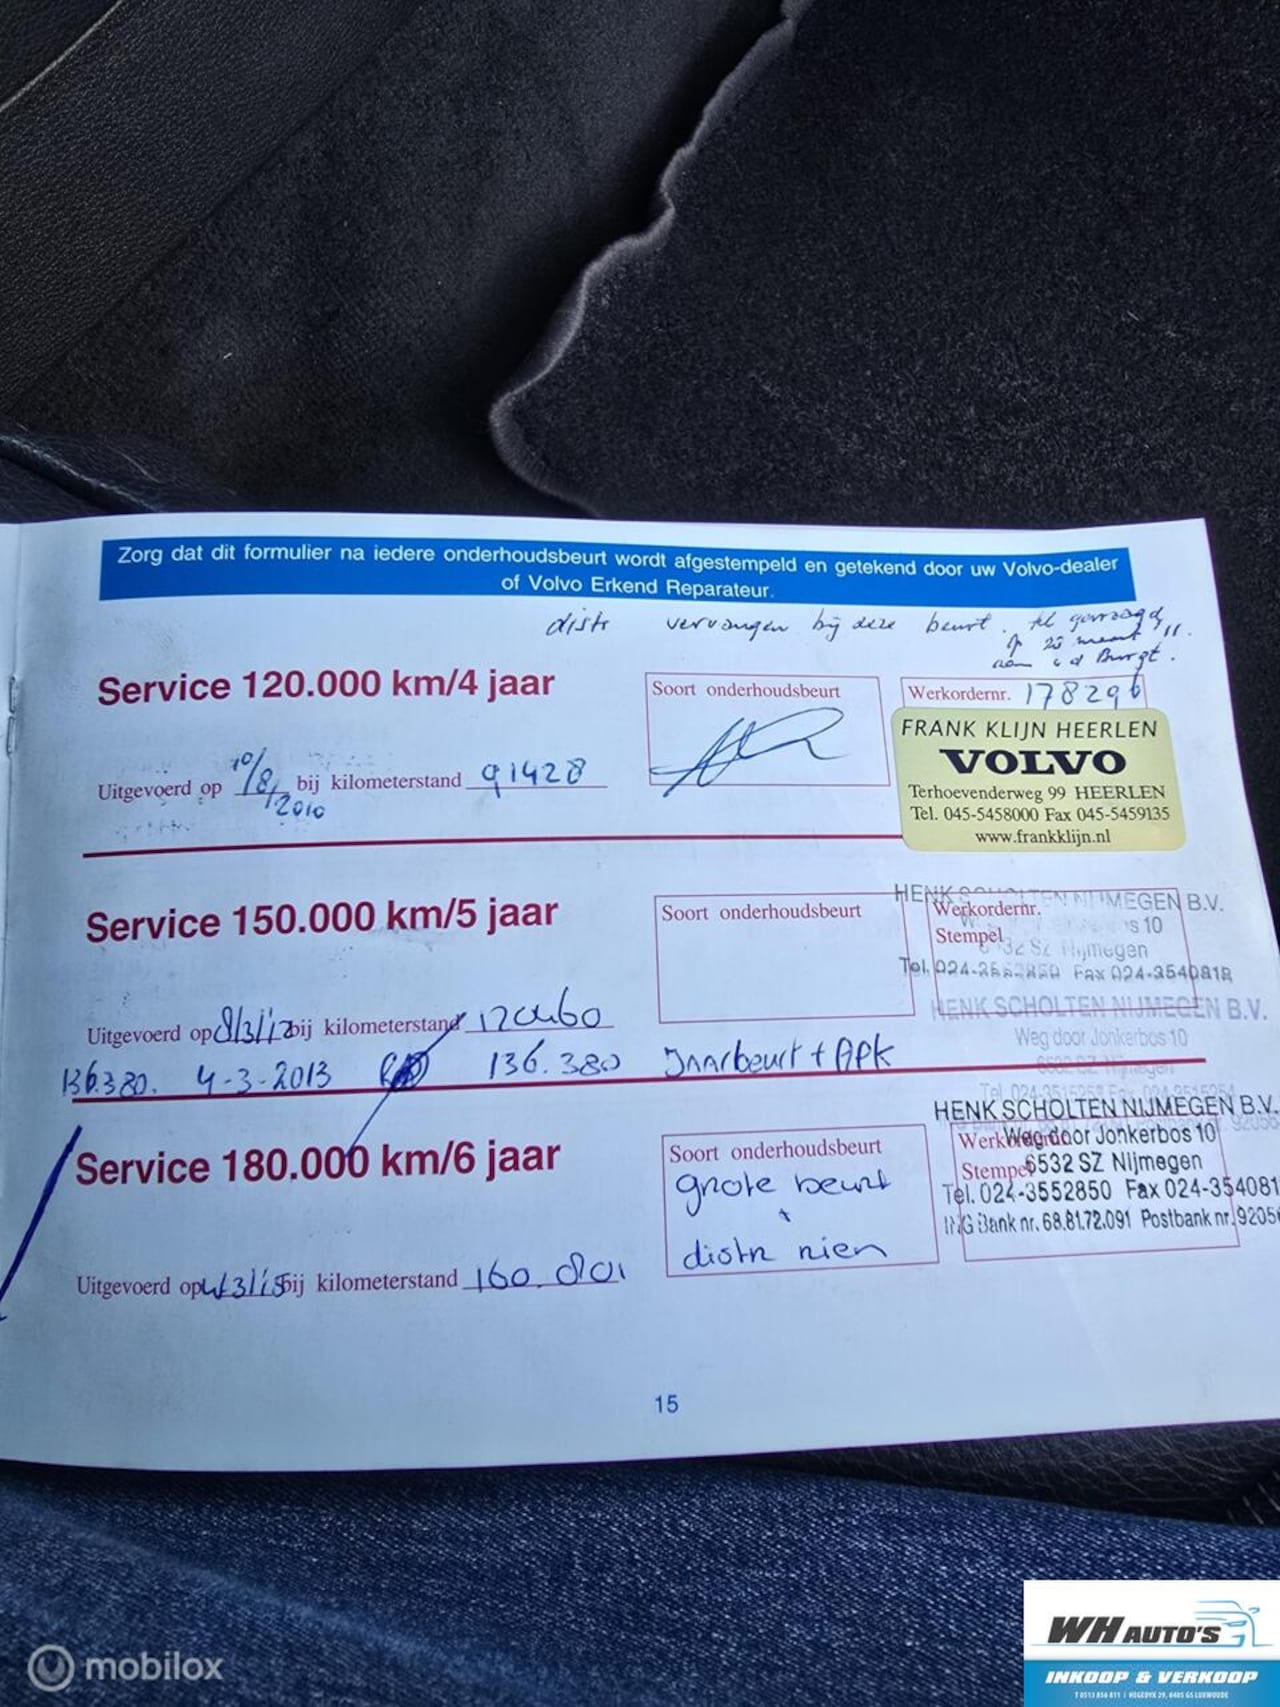 Zorg dat dit formulier na iedere onderhoudsbeurt wordt afgestempeld en getekend door uw Volvo-dealer
of Volvo Erkend Reparateur.
distr vervangen bij deze beurt.
Service 120.000 km/4 jaar
Soort onderhoudsbeurt
Werkordernr. 178296
Uitgevoerd op 10/8/2010 bij kilometerstand 91428
FRANK KLIJN HEERLEN
VOLVO
Terhoevenderweg 99 HEERLEN
Tel. 045-5458000 Fax 045-5459135
www.frankklijn.nl
Service 150.000 km/5 jaar
Soort onderhoudsbeurt
Werkordernr.
Stempel
HENK SCHOLTEN NIJMEGEN B.V.
6532 SZ Nijmegen
Tel. 024-3552850 Fax 024-3540818
Uitgevoerd op 8/3/12 bij kilometerstand 120460
HENK SCHOLTEN NIJMEGEN B.V.
Weg door Jonkerbos 10
136.380. 4-3-2013 136.380 Jaarbeurt + APK
Service 180.000 km/6 jaar
Soort onderhoudsbeurt
grote beurt
+
distr riem
Stempel
HENK SCHOLTEN NIJMEGEN B.V.
Weg door Jonkerbos 10
6532 SZ Nijmegen
Tel. 024-3552850 Fax 024-354081
ING Bank nr. 68.81.72.091 Postbank nr. 9205
Uitgevoerd op 4/3/15 bij kilometerstand 160.801
15
mobilox
WH AUTO'S
INKOOP & VERKOOP